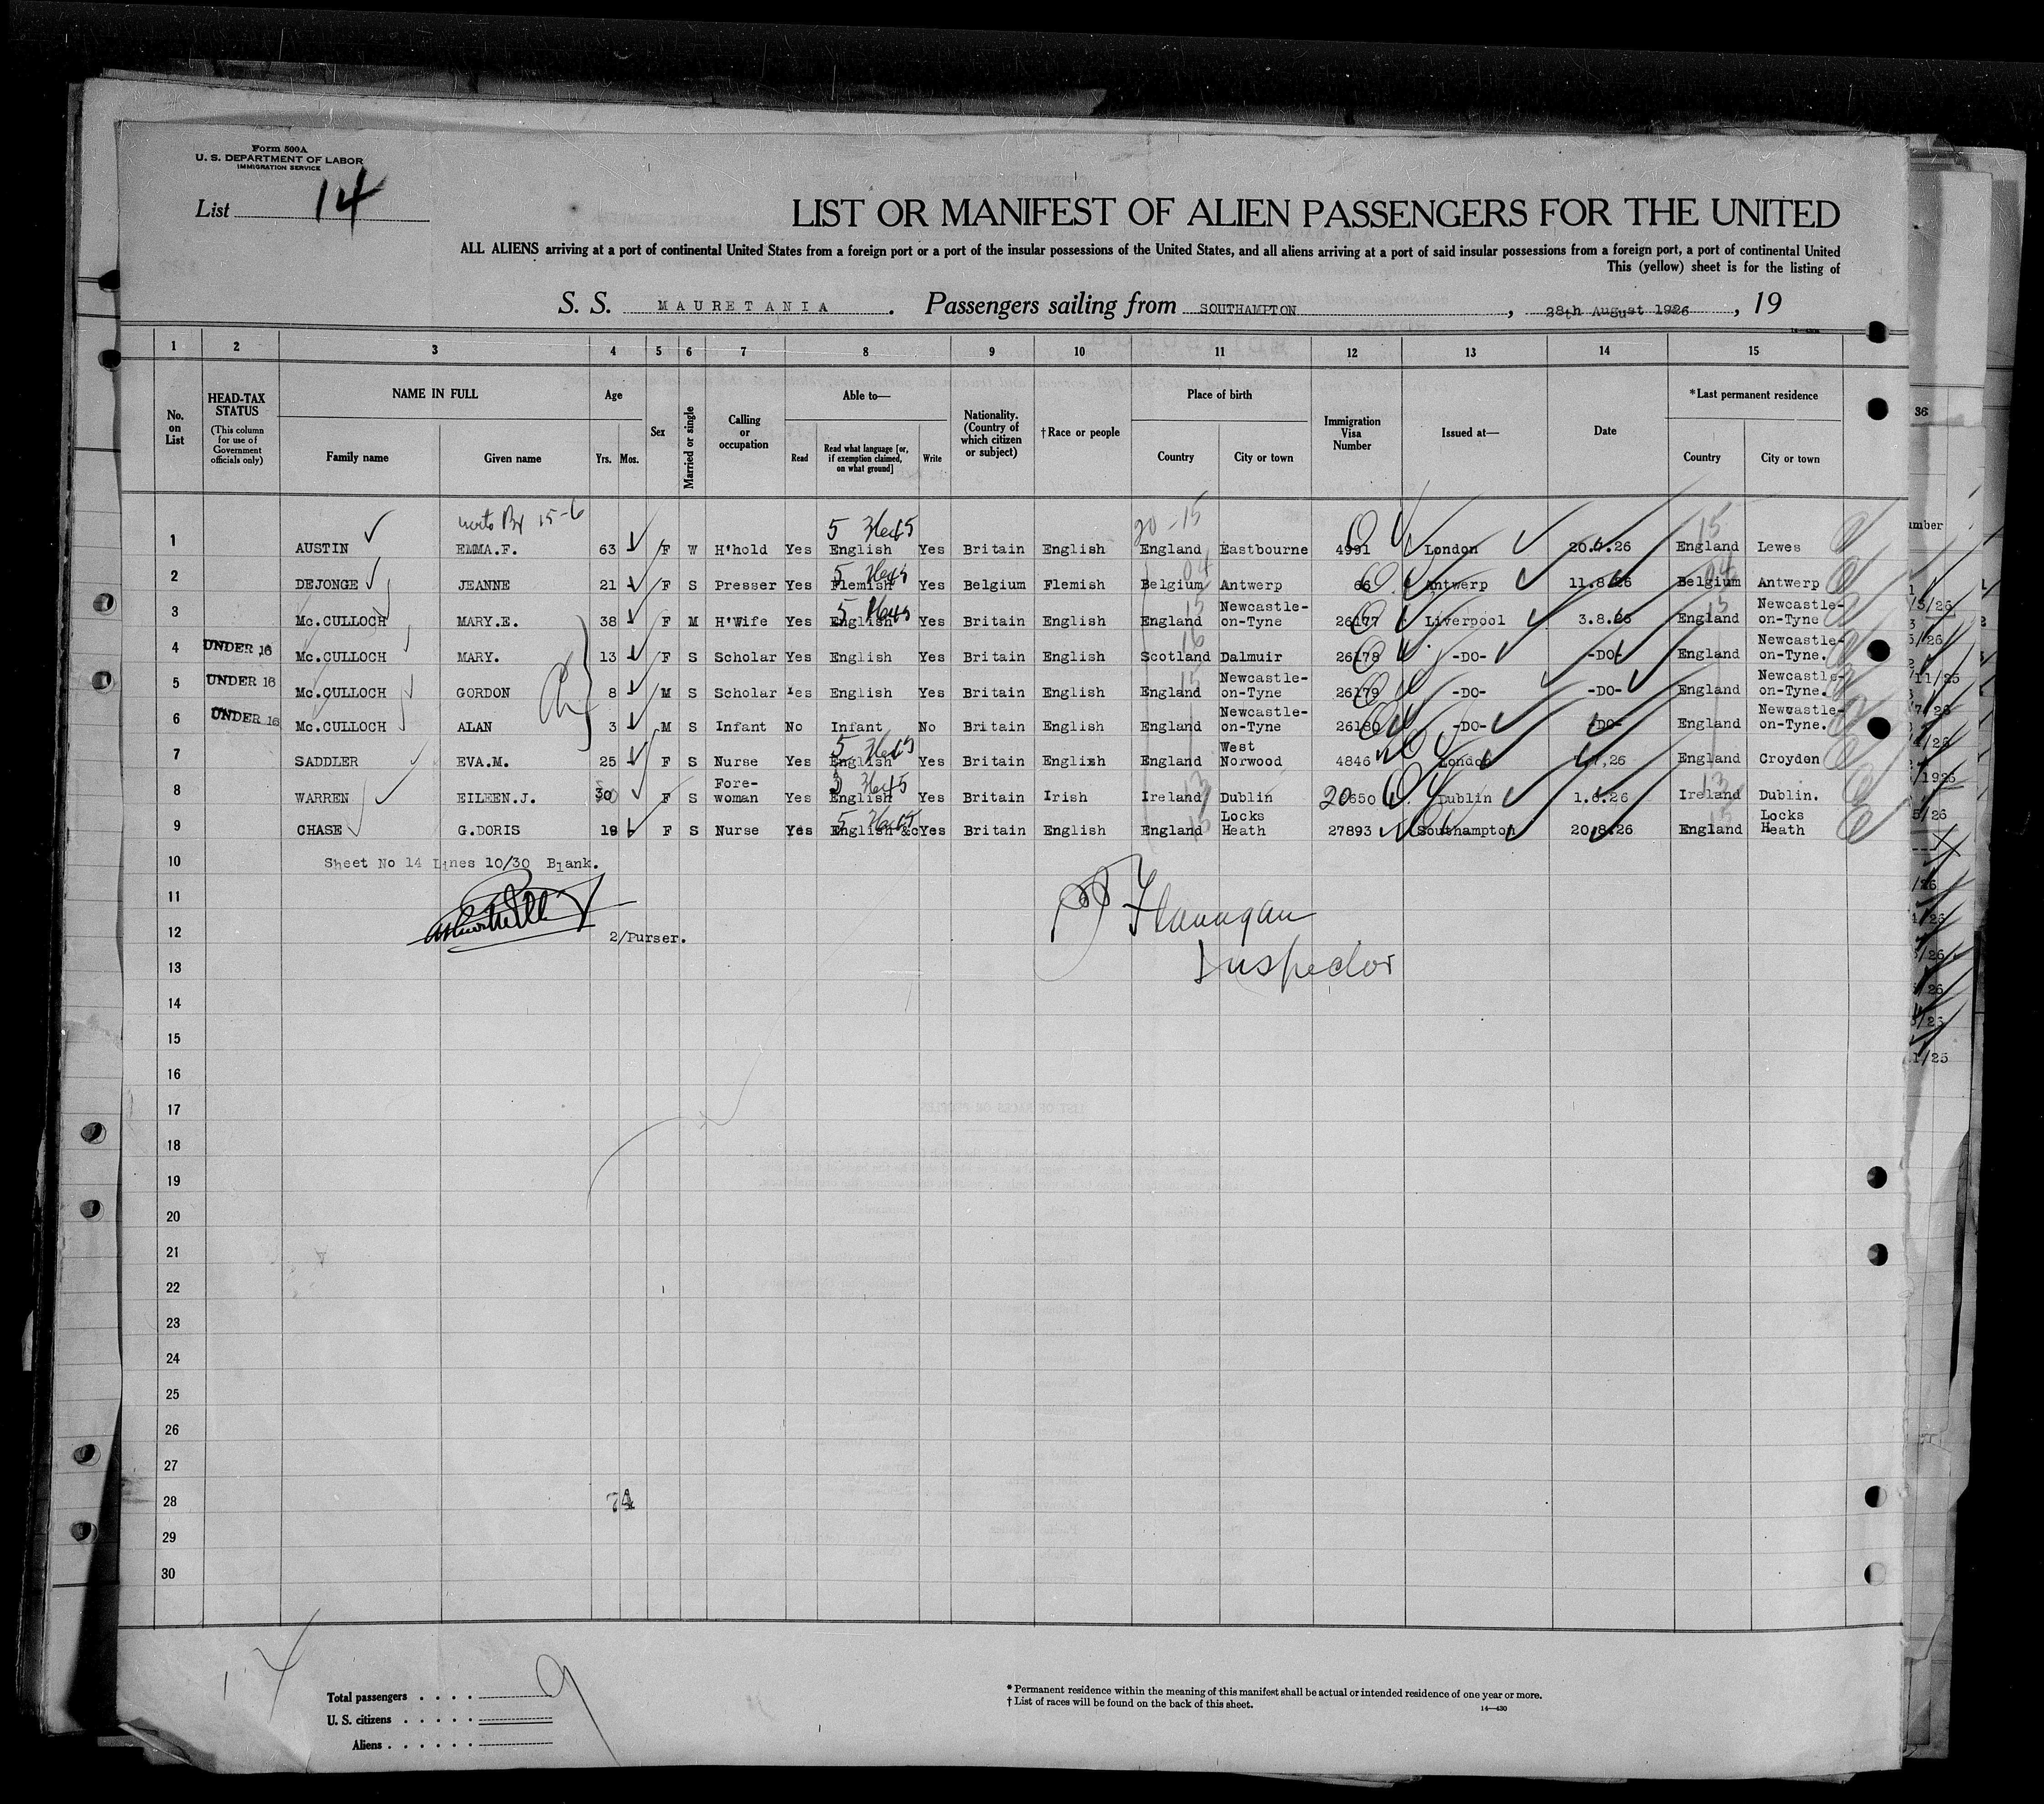 Form 500A
U. S. DEPARTMENT OF LABOR
IMMIGRATION SERVICE
List 14
LIST OR MANIFEST OF ALIEN PASSENGERS FOR THE UNITED
ALL ALIENS arriving at a port of continental United States from a foreign port or a port of the insular possessions of the United States, and all aliens arriving at a port of said insular possessions from a foreign port, a port of continental United
This (yellow) sheet is for the listing of
S. S. MAURETANIA. Passengers sailing from SOUTHAMPTON, 28th August 1926, 19
1 2 3 4 5 6 7 8 9 10 11 12 13 14 15
No. on List
HEAD-TAX STATUS
(This column for use of Government officials only)
NAME IN FULL
Family name
Given name
Age
Yrs. Mos.
Sex
Married or single
Calling or occupation
Able to—
Read
Read what language [or, if exemption claimed, on what ground]
Write
Nationality. (Country of which citizen or subject)
†Race or people
Place of birth
Country
City or town
Immigration Visa Number
Issued at—
Date
*Last permanent residence
Country
City or town
15-6
20-15
1 AUSTIN EMMA.F. 63 F W H'hold Yes English Yes Britain English England Eastbourne 4991 London 26 England Lewes
2 DEJONGE JEANNE 21 F S Presser Yes Flemish Yes Belgium Flemish Belgium Antwerp 66 Antwerp 11.8.26 Belgium Antwerp
3 Mc.CULLOCH MARY.E. 38 F M H'Wife Yes English Yes Britain English England Newcastle-on-Tyne 26177 Liverpool 3.8.26 England Newcastle-on-Tyne
4 UNDER 16 Mc.CULLOCH MARY. 13 F S Scholar Yes English Yes Britain English Scotland Dalmuir 26178 -DO- -DO- England Newcastle-on-Tyne.
5 UNDER 16 Mc.CULLOCH GORDON 8 M S Scholar Yes English Yes Britain English England Newcastle-on-Tyne 26179 -DO- -DO- England Newcastle-on-Tyne.
6 UNDER 16 Mc.CULLOCH ALAN 3 M S Infant No Infant No Britain English England Newcastle-on-Tyne 26180 -DO- -DO- England Newcastle-on-Tyne.
7 SADDLER EVA.M. 25 F S Nurse Yes English Yes Britain English England West Norwood 4846 London 26 England Croydon
8 WARREN EILEEN.J. 30 F S Fore-woman Yes English Yes Britain Irish Ireland Dublin 20650 Dublin 1.6.26 Ireland Dublin.
9 CHASE G.DORIS 19 F S Nurse Yes English &c Yes Britain English England Locks Heath 27893 Southampton 20.8.26 England Locks Heath
10 Sheet No 14 Lines 10/30 Blank.
11
12 2/Purser.
Flanagan
Inspector
13
14
15
16
17
18
19
20
21
22
23
24
25
26
27
28
29
30
14
Total passengers 9
U. S. citizens
Aliens
* Permanent residence within the meaning of this manifest shall be actual or intended residence of one year or more.
† List of races will be found on the back of this sheet.
14—430
36